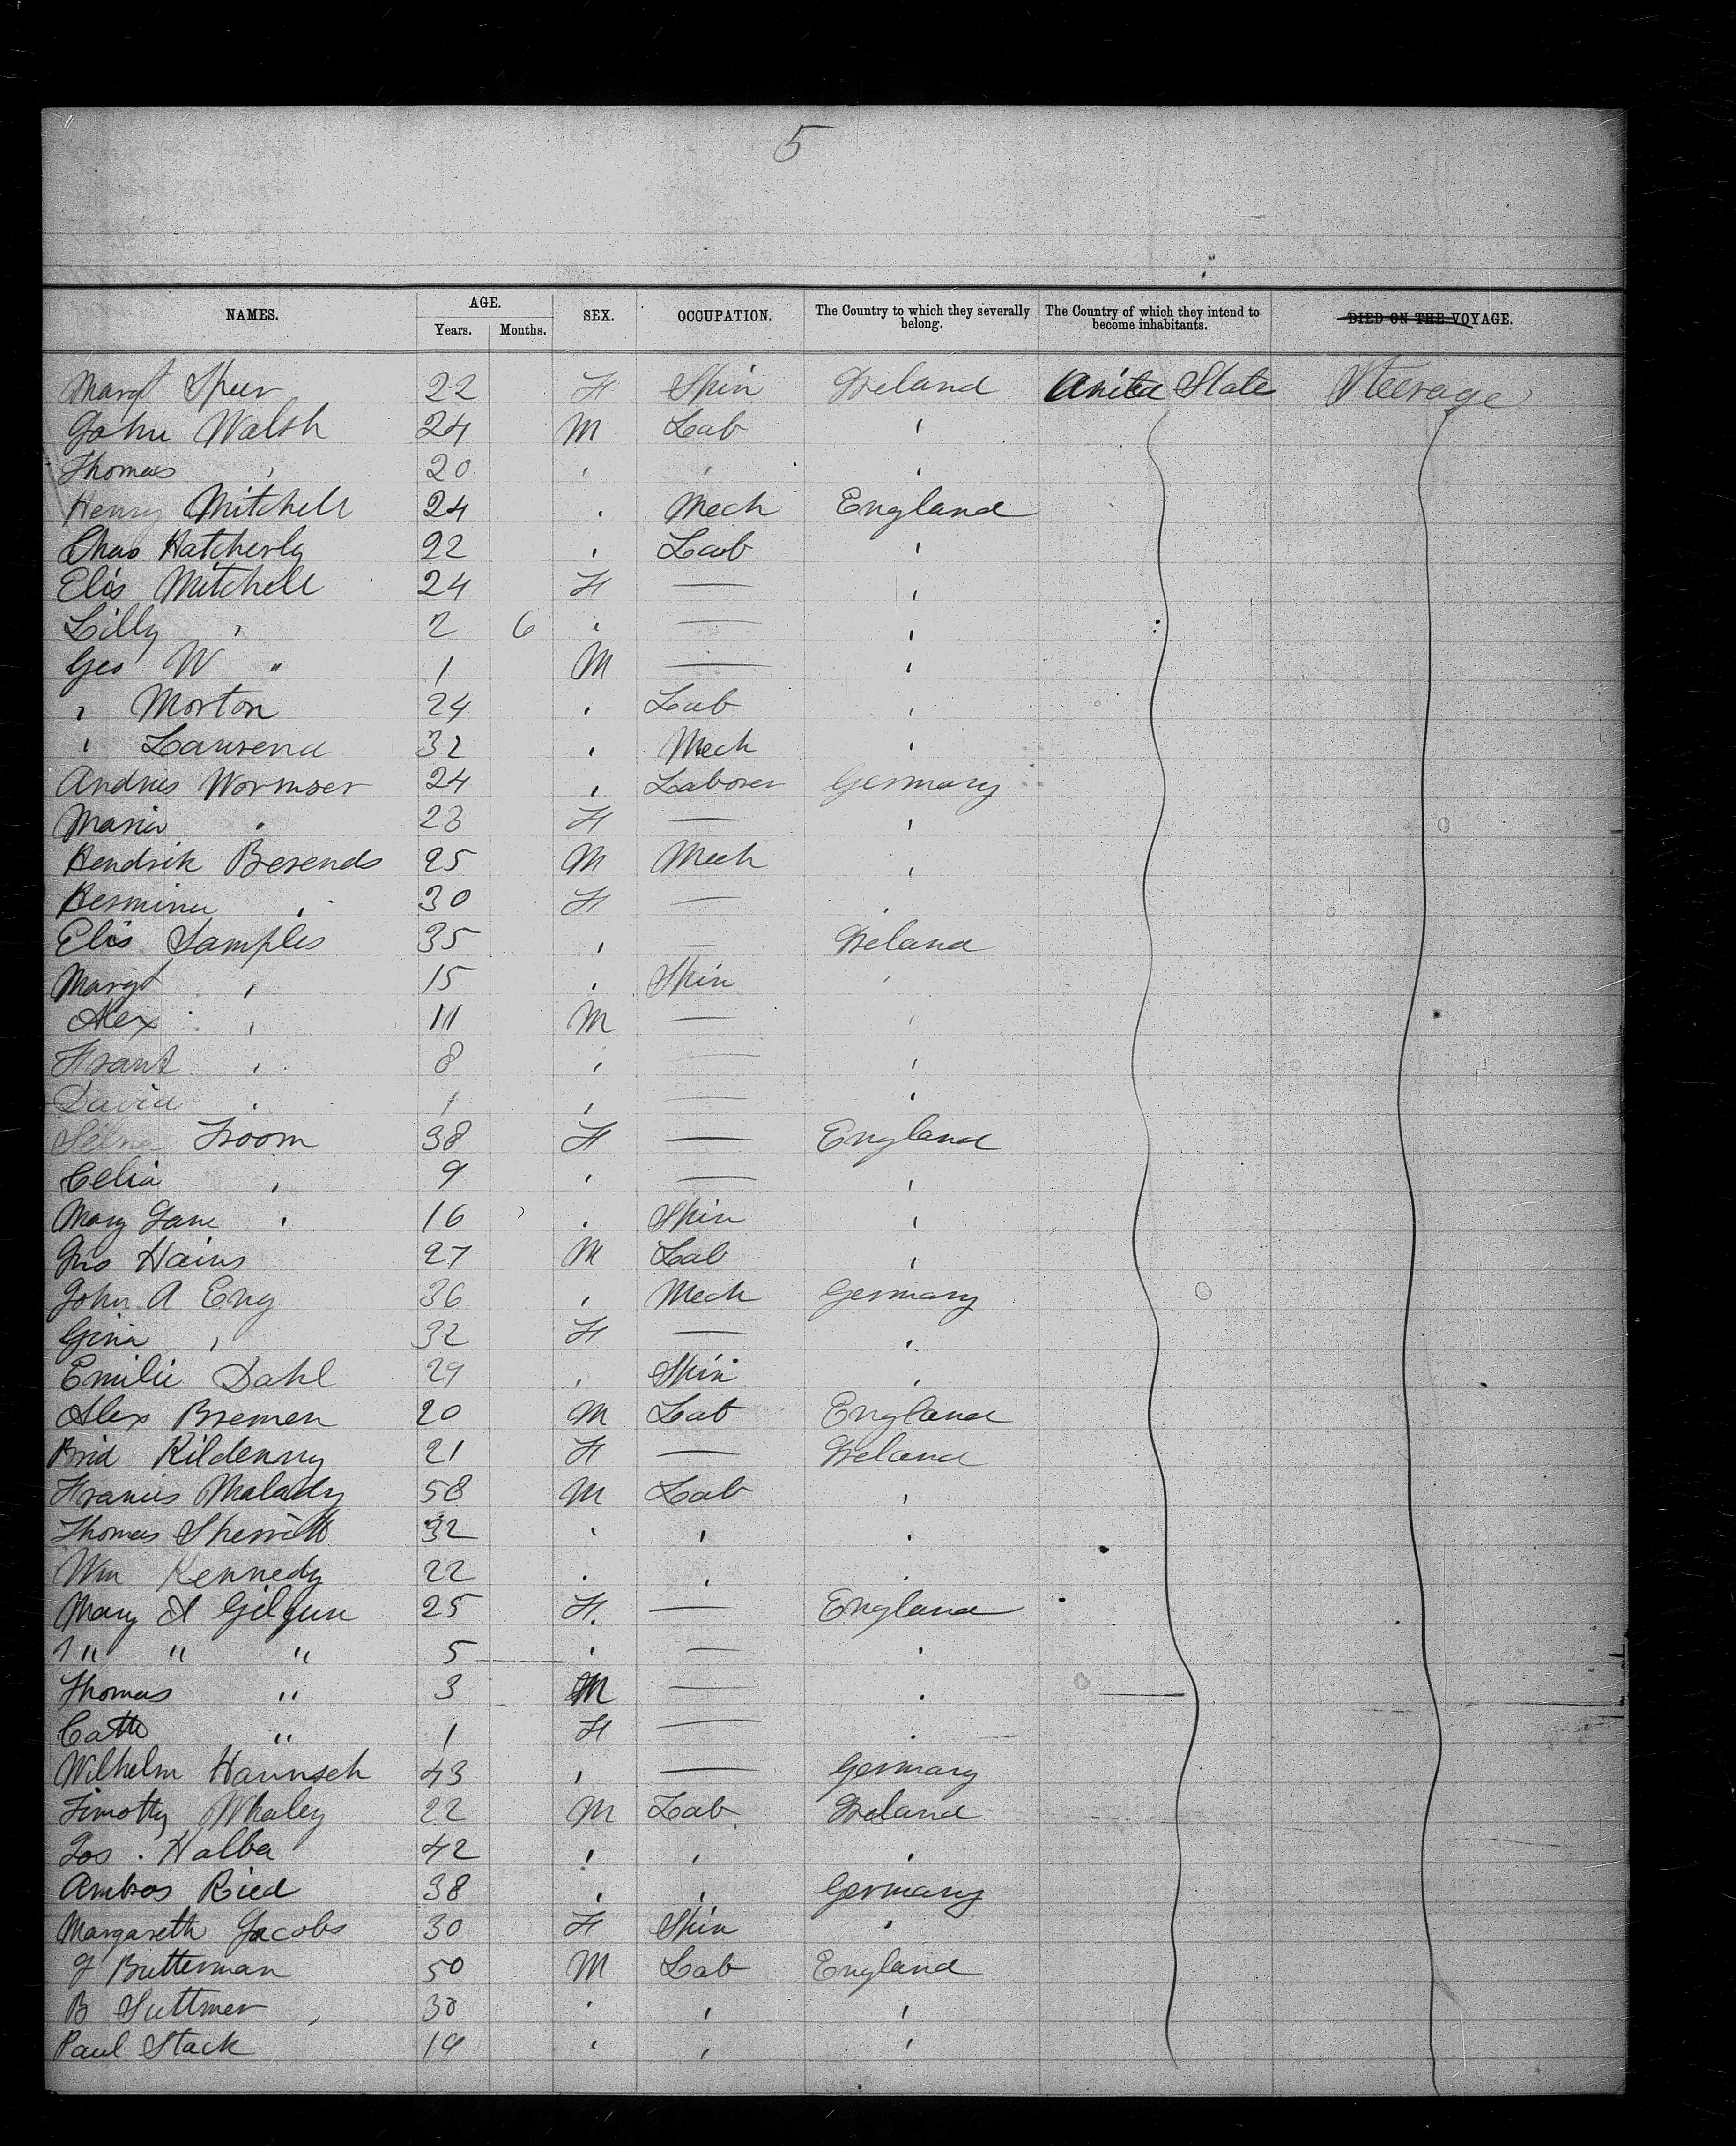 5
NAMES. AGE. Years. Months. SEX. OCCUPATION. The Country to which they severally belong. The Country of which they intend to become inhabitants. DIED ON THE VOYAGE.
Margt Speer 22 F Spin Ireland United State Steerage
John Walsh 24 M Lab '
Thomas ' 20 ' ' '
Henry Mitchell 24 ' Mech England
Chas Hatcherly 22 ' Lab '
Elis Mitchell 24 F — '
Lilly ' 2 6 ' — '
Geo W " 1 M — '
' Morton 24 ' Lab '
' 32 ' Mech '
Andres Wormser 24 ' Laborer Germany
Maria ' 23 F — '
Hendrik Berends 25 M Mech '
Hermina ' 30 F — '
Elis Samples 35 ' — Ireland
Margt ' 15 ' Spin '
Alex ' 11 M — '
' 8 ' — '
David ' 1 ' — '
Froom 38 F — England
Celia ' 9 ' — '
Mary Jane ' 16 ' Spin '
Jno Hains 27 M Lab '
John A Eng 36 ' Mech Germany
Gina ' 32 F — '
Emilie Dahl 29 ' Spin '
Alex Bremen 20 M Lab England
Brid Kildenny 21 F — Ireland
Francis Malady 58 M Lab '
Thomas Sherritt 32 ' ' '
Wm Kennedy 22 ' ' '
Mary A Gilgun 25 F. — England
" " " 5 ' — '
Thomas " 3 M — '
Cath " 1 F — '
Wilhelm Haunsch 43 ' — Germany
Timothy Whaley 22 M Lab Ireland
Jos. Halba 42 ' ' '
Ambros Ried 38 ' ' Germany
Margareth Jacobs 30 F Spin '
J Butterman 50 M Lab England
B Suttmer 30 ' ' '
Paul Stack 19 ' ' '